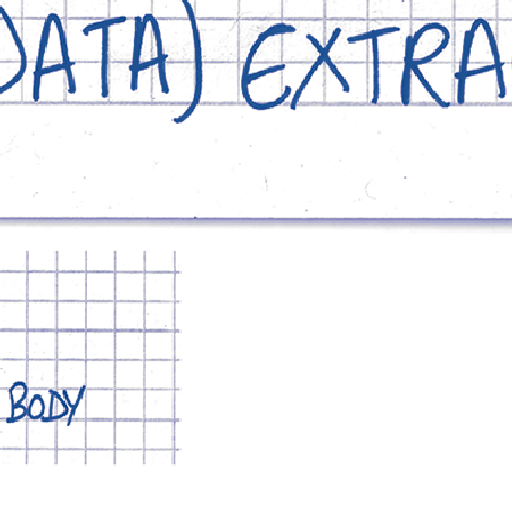 DATA) EXTRA
BODY